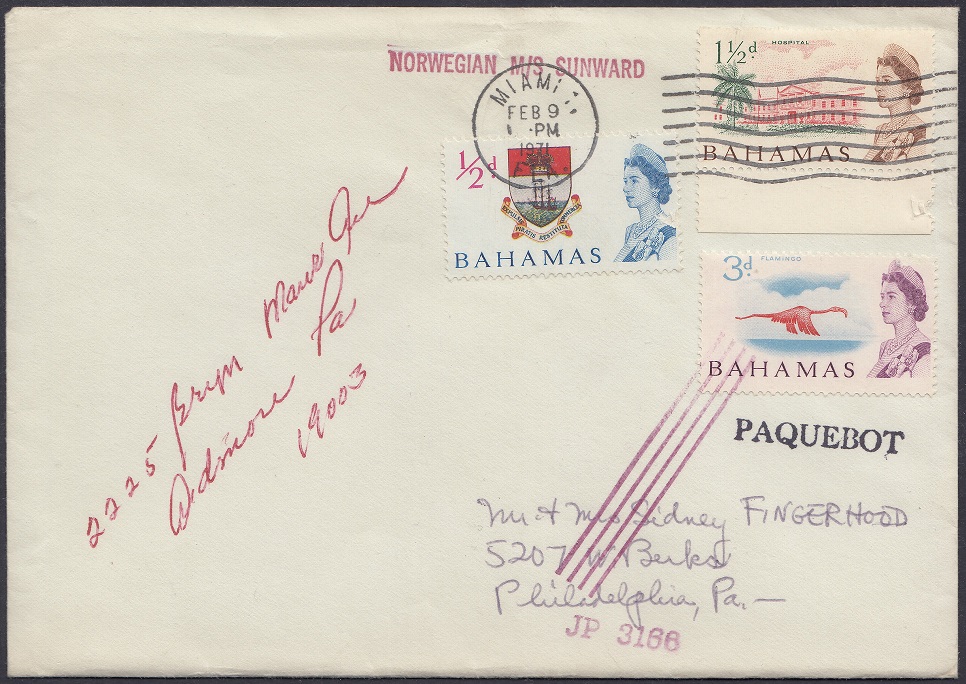 NORWEGIAN M/S SUNWARD
MIAMI
FEB 9
PM
1971
FLA.
1½d HOSPITAL
BAHAMAS
½d
EXPULSIS PIRATIS RESTITUTA COMMERCIA
BAHAMAS
3d. FLAMINGO
BAHAMAS
PAQUEBOT
2225 Bryn Mawr Ave
Ardmore Pa
19003
Mr + Mrs Sidney FINGERHOOD
5207 W Berks
Philadelphia, Pa.—
JP 3166